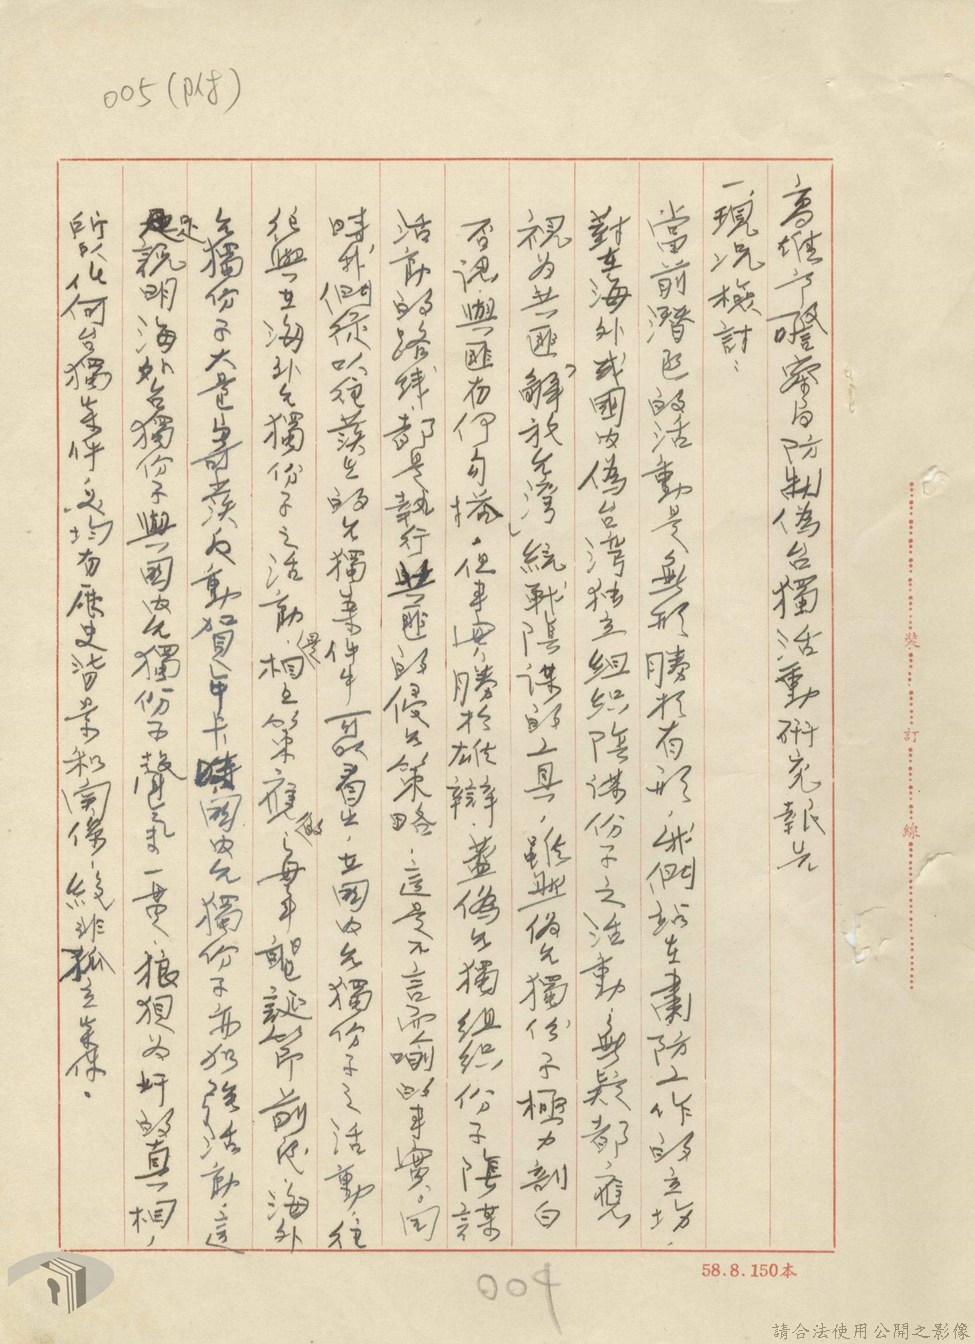 005(附)
高雄市警察局防制偽台獨活動研究報告
一、現況檢討：
當前潛匪的活動是無形勝於有形，我們站在肅防工作的立場，
對在海外或國內偽台灣独立組织陰謀份子之活動，無疑都應
視為共匪「解放台灣」統戰陰謀的工具，雖然偽台獨份子極力剖白
否認與匪有何勾搭，但事實勝於雄辯，蓋偽台獨組织份子陰謀
活動的路线，都是執行共匪的侵台策略，這是不言而喻的事實。同
時我們從以往發生的台獨案件中可以看出，在國內台獨份子之活動，往
往與在海外台獨份子之活動，是相互策應的，每年聖誕節前後，海外
台獨份子大量寄發反動賀年卡時國內台獨份子亦加強活動，這
足說明海外台獨份子與國內台獨份子聲氣一貫，狼狽為奸的真相，
所以任何台獨案件必均有歷史背景和關係，絕非孤立案件。
裝
訂
線
58.8.150本
請合法使用公開之影像